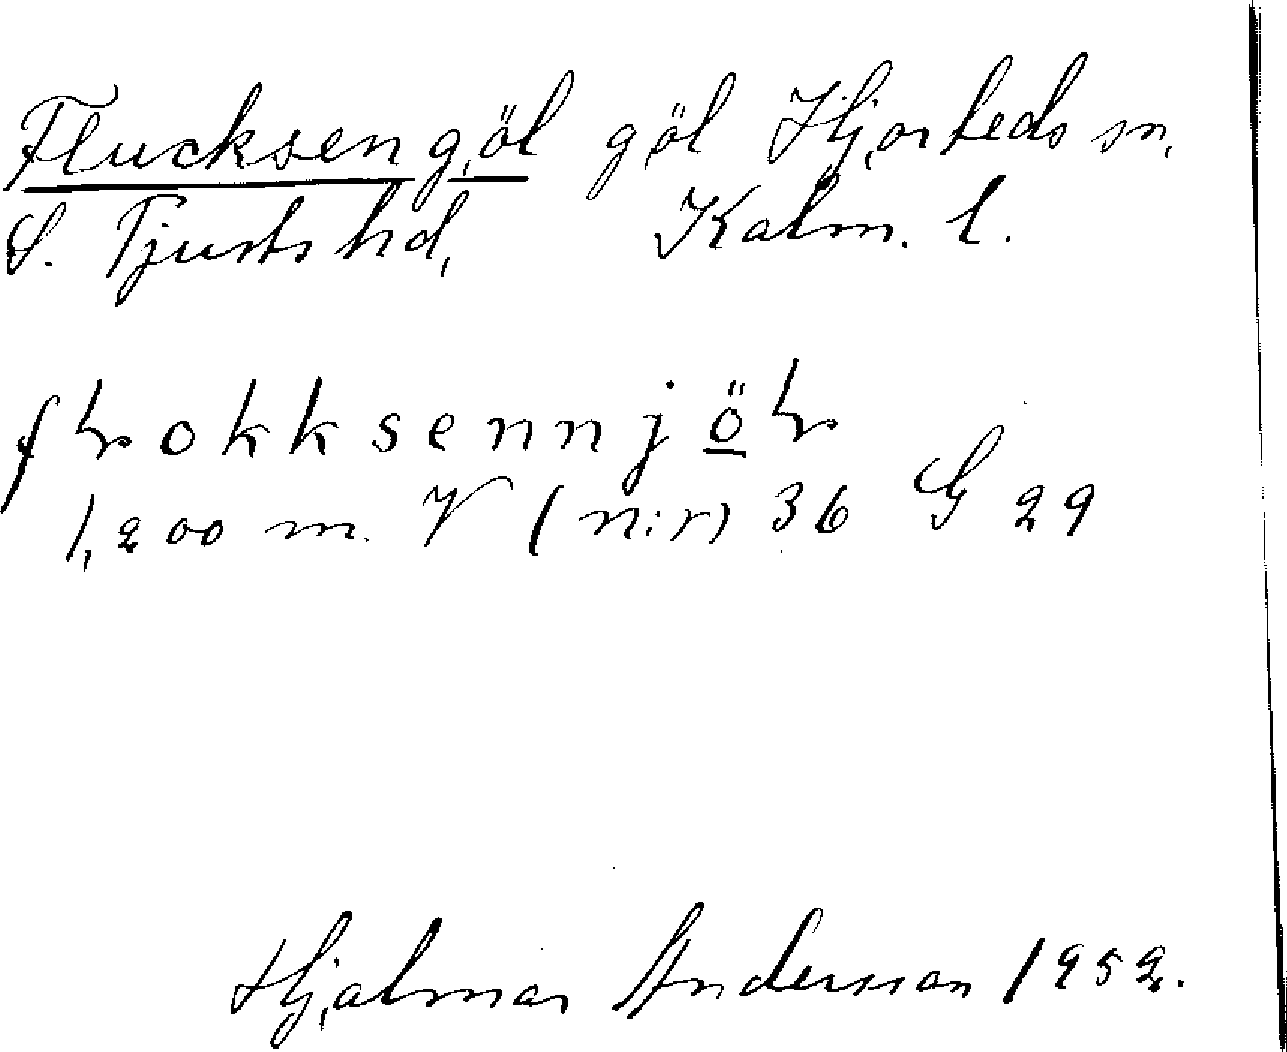 Flucksengöl göl Hjorteds sn.
S. Tjusts hd. Kalm. l.
fɬokksennjöɬ
1,200 m. V (n:r) 36 G 29
Hjalmar Andersson 1952.